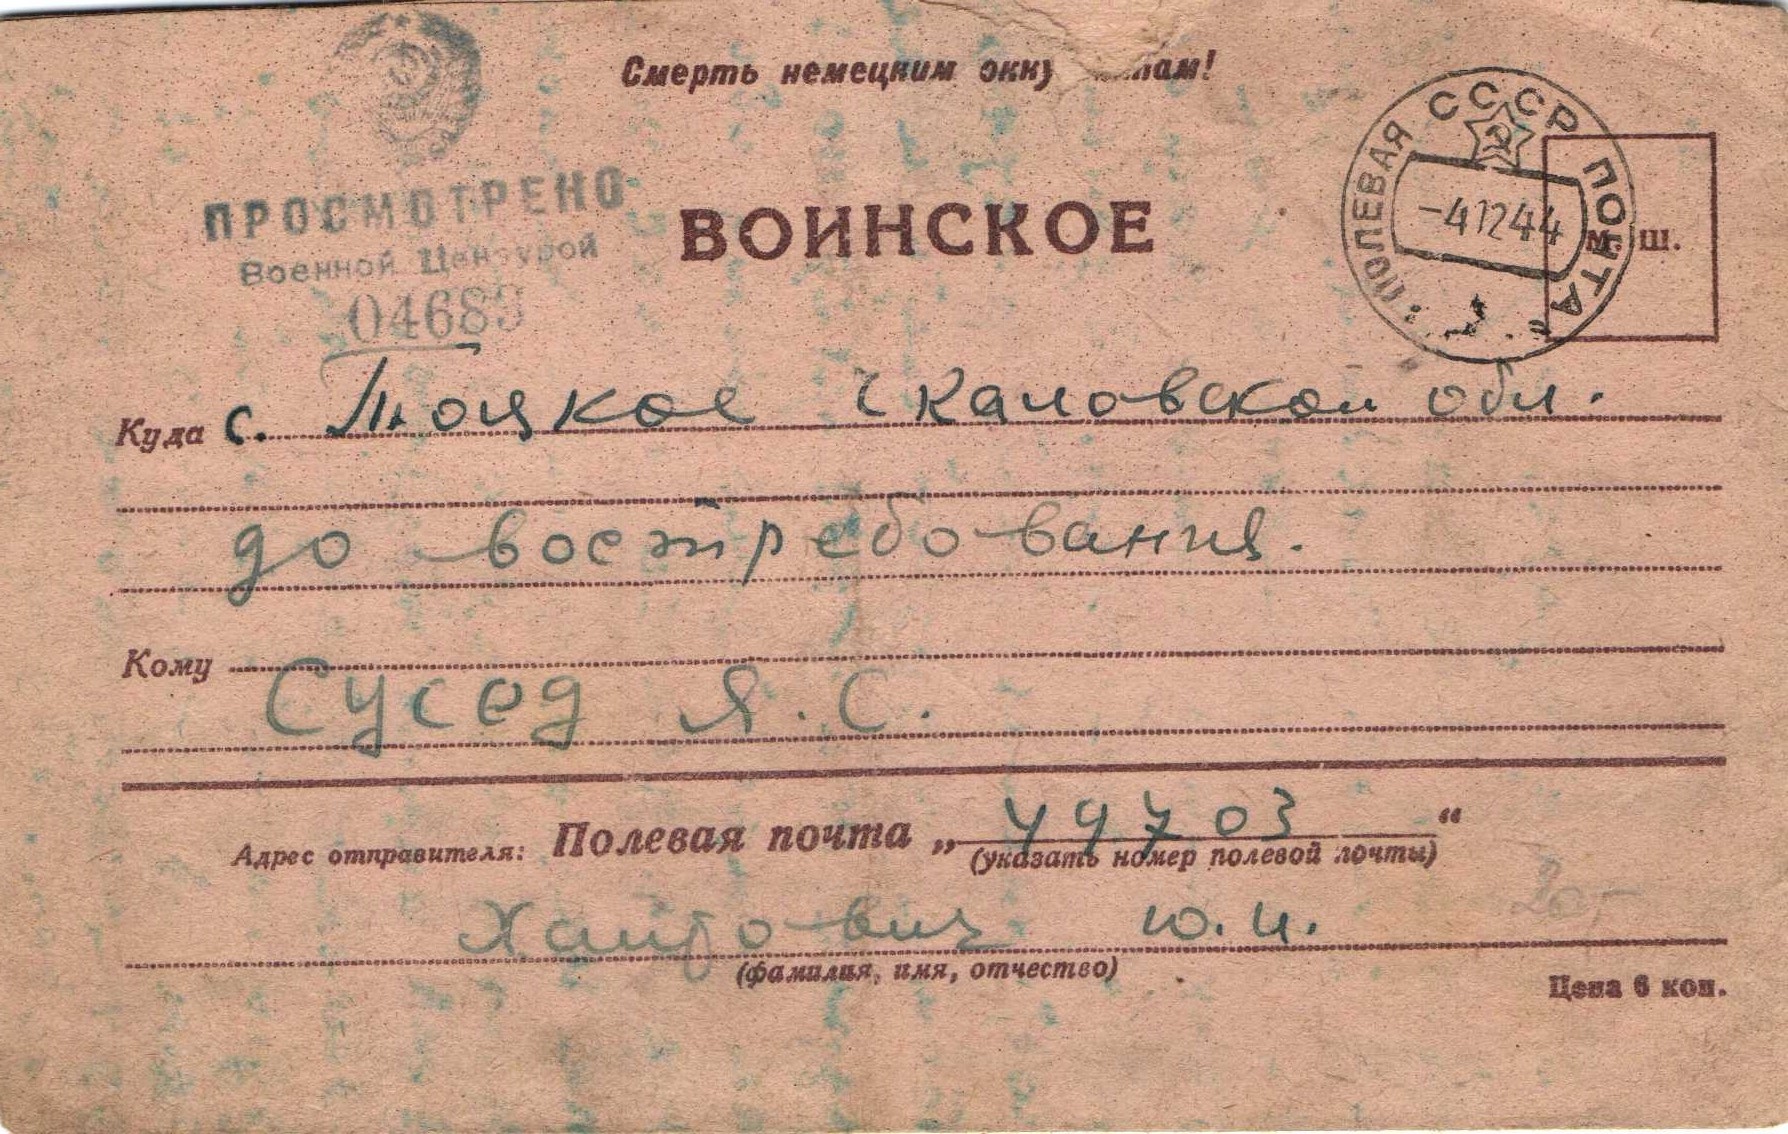 Смерть немецким окку   ятам!
ПРОСМОТРЕНО
Военной Цензурой
04689
ВОИНСКОЕ
ПОЛЕВАЯ СССР ПОЧТА
-41244
м. ш.
Куда с. Тоцкое Чкаловской обл.
до востребования.
Кому
Сусед Я. С.
Адрес отправителя: Полевая почта „ 49703 “
(указать номер полевой почты)
Ю. И.
20,-
(фамилия, имя, отчество)
Цена 6 коп.